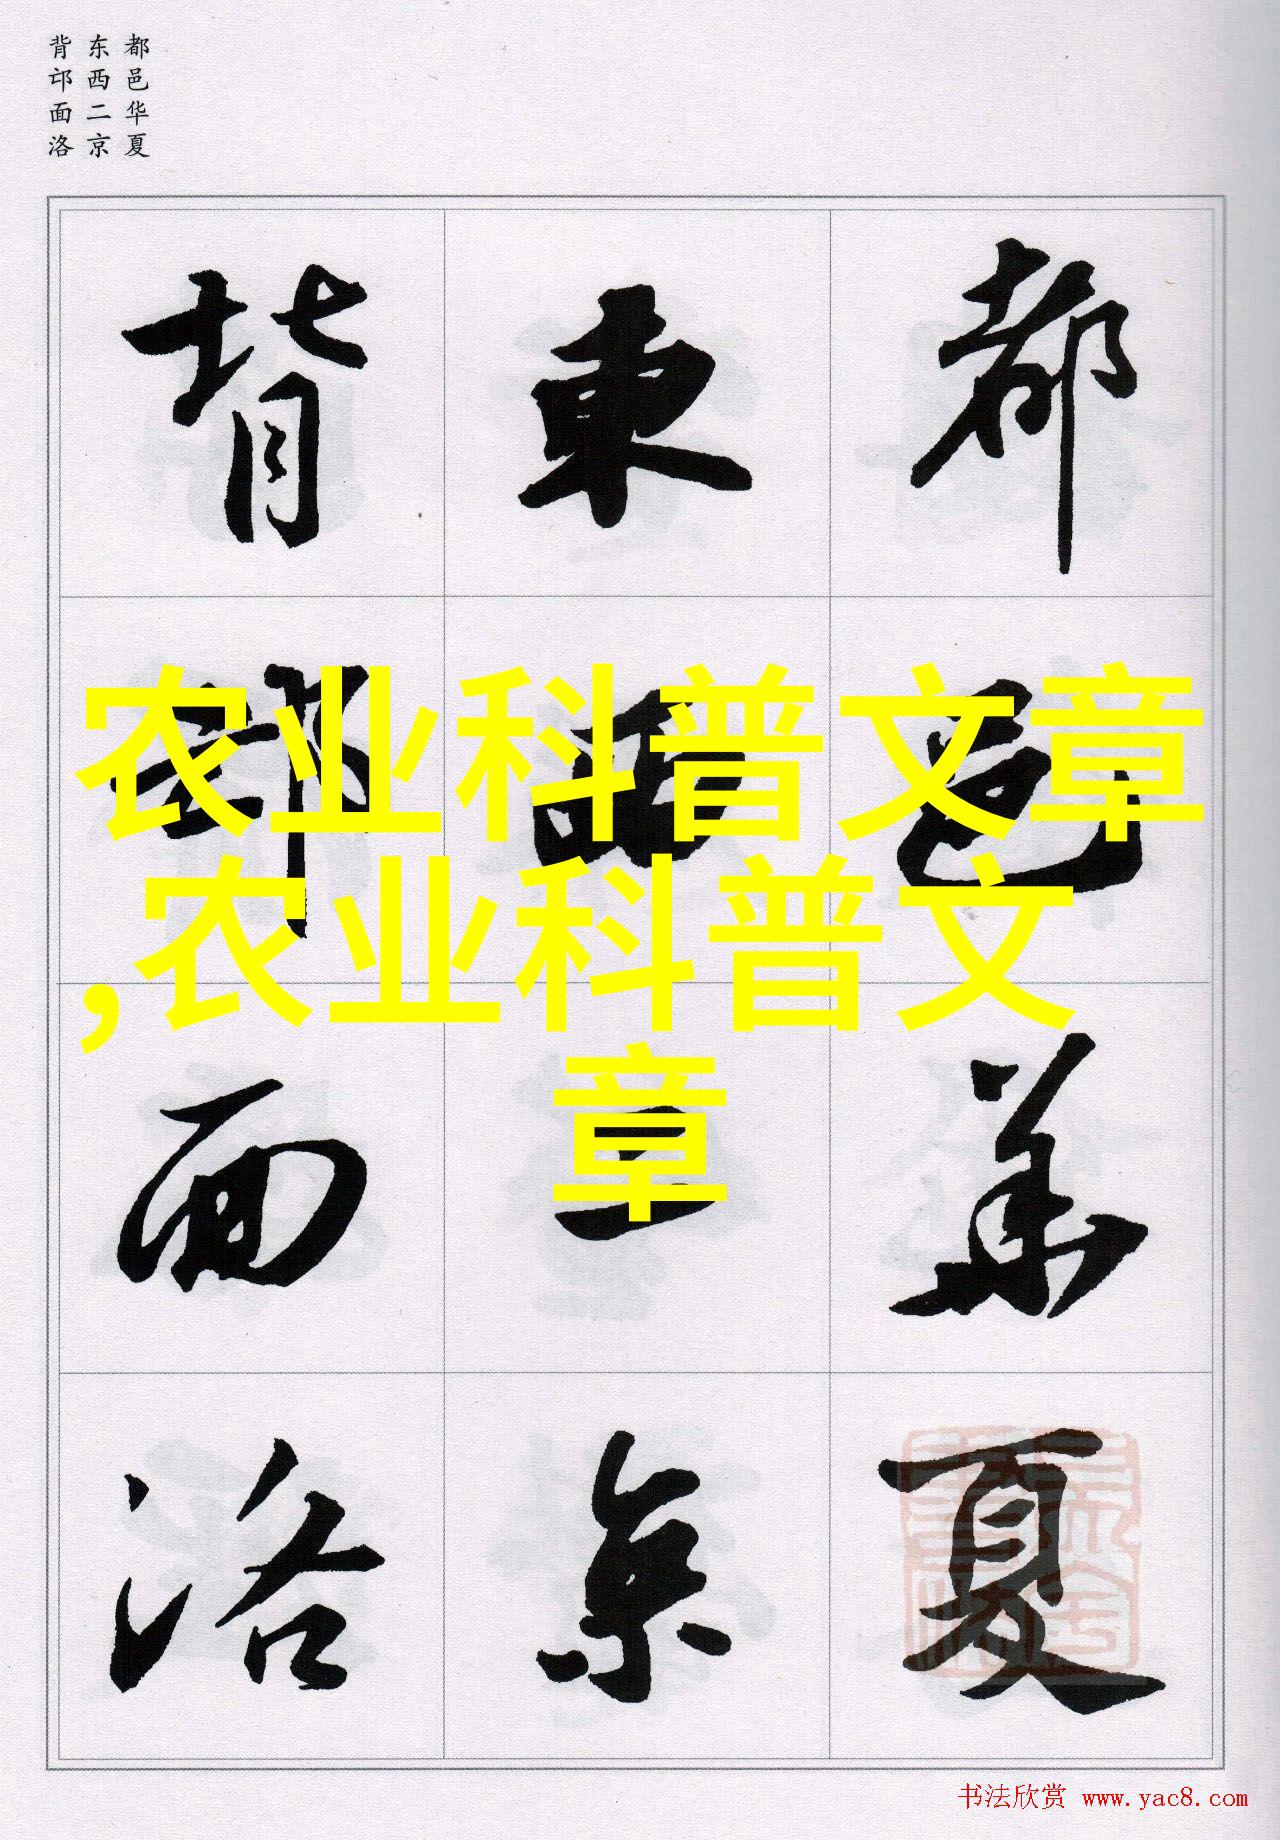 都邑华夏
东西二京
背邙面洛
都邑華夏
東西二京
背邙面洛
农业科普文章
,农业科普文
章
书法欣赏 www.yac8.com